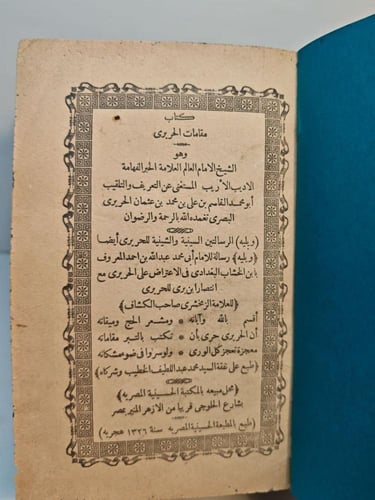 كتاب
مقامات الحريرى
وهو
الشيخ الامام العالم العلامة الحبر الفهامة
الاديب الأريب المستغنى عن التعريف والتلقيب
أبو محمد القاسم بن على بن محمد بن عثمان الحريرى
البصرى تغمده الله بالرحمة والرضوان
(ويليه) الرسالتين السينية والشينية للحريرى أيضا
(ويليه) رسالة للامام أبى محمد عبد الله بن احمد المعروف
بابن الخشاب البغدادى فى الاعتراض على الحريرى مع
انتصار ابن برى للحريرى
(للعلامة الزمخشرى صاحب الكشاف)
أقسم بالله وآياته * ومشعر الحج وميقاته
أن الحريرى حرى بأن * تكتب بالتبر مقاماته
معجزة تعجز كل الورى * ولو سروا فى ضوء مشكاته
(طبع على نفقة السيد محمد عبد اللطيف الخطيب وشركاه)
(محل مبيعه بالمكتبة الحسينية المصريه)
بشارع الحلوجى قريبا من الازهر المنير بمصر
(طبع بالمطبعة الحسينية المصريه سنة ١٣٢٦ هجريه)